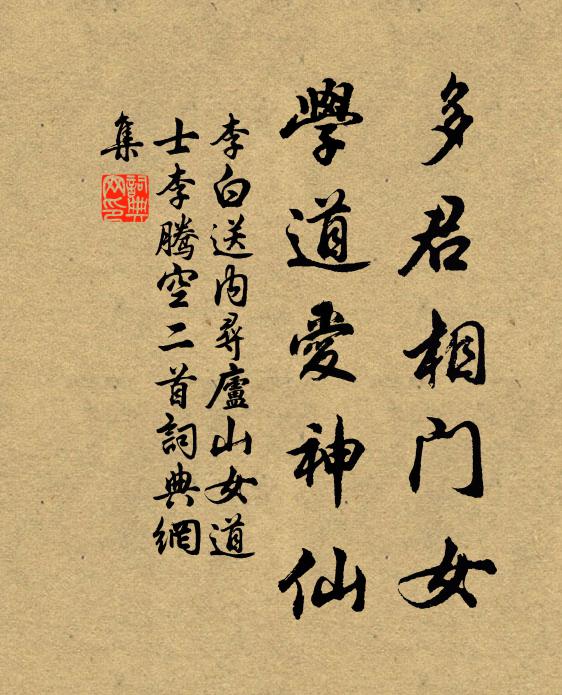 多君相門女
學道愛神仙
李白送內尋廬山女道
士李騰空二首詞典網
集
詞典
网印